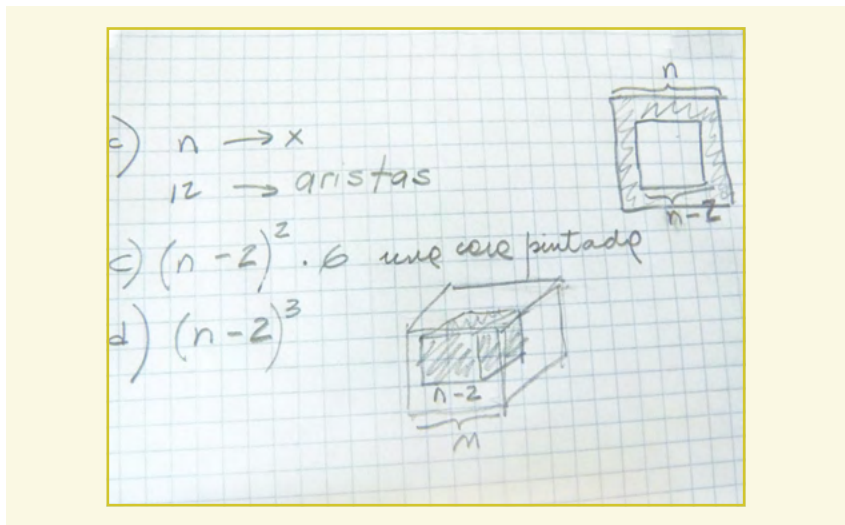 c) n → x
12 → aristas
c) (n - 2)² . 6 una cara pintada
d) (n - 2)³
n
n - 2
n - 2
n